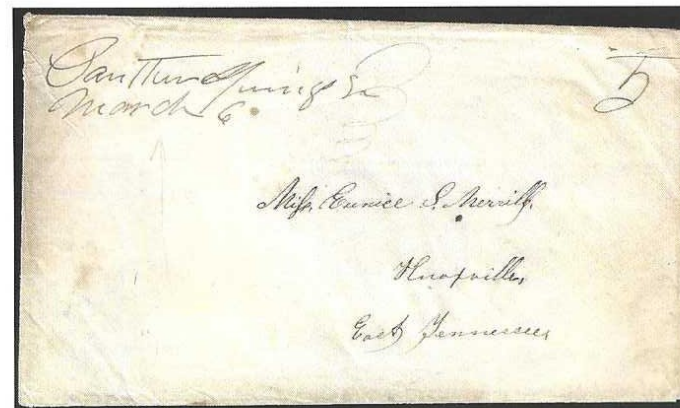 Panther Springs Tn
March 6
5
Miss. Eunice S. Merrill,
Knoxville,
East Tennessee,